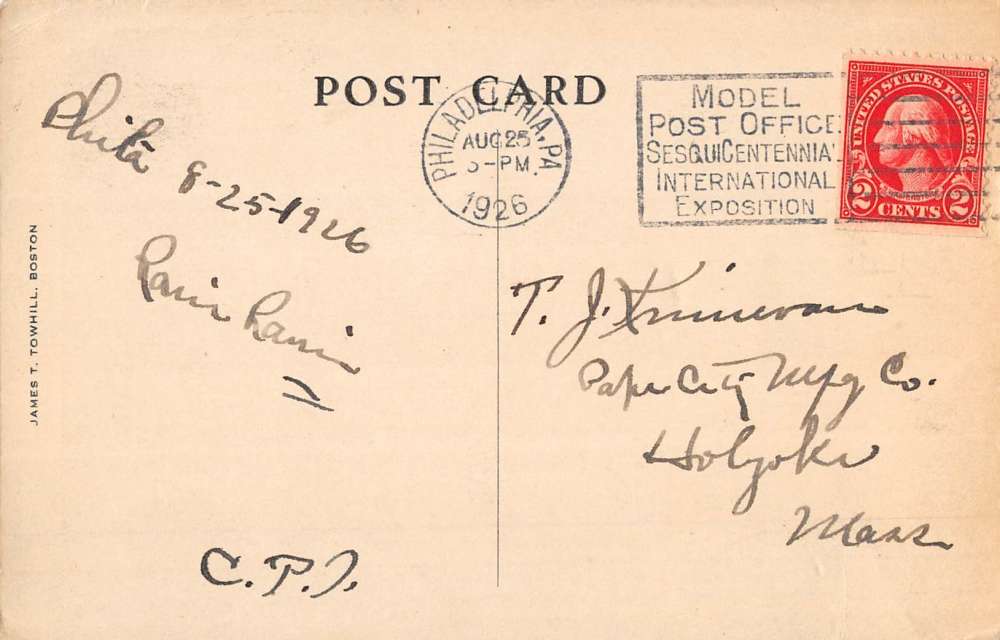 POST CARD
PHILADELPHIA, PA
AUG 25
-PM.
1926
MODEL
POST OFFICE
SESQUICENTENNIA
INTERNATIONAL
EXPOSITION
UNITED STATES POSTAGE
2 CENTS 2
Phila 8-25-1926
Rain Rain
C.P.J.
JAMES T. TOWHILL, BOSTON
T. J.
Paper City Mfg Co.
Holyoke
Mass